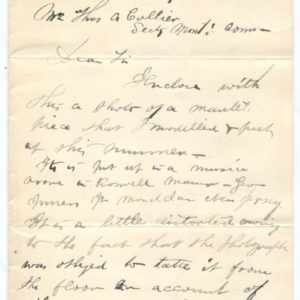 Mr Thos A Collier
Secty Mont! Com—
Dear Sir
Enclose with
this a photo of a mantel
piece that I modelled & put
up this summer—
It is put up in a music
room in
It is a little distorted owing
to the fact that the photograph
was obliged to take it from
the floor on account of